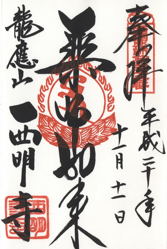 奉拝
平成二十年
十一月十一日
薬師如来
龍應山
西明寺